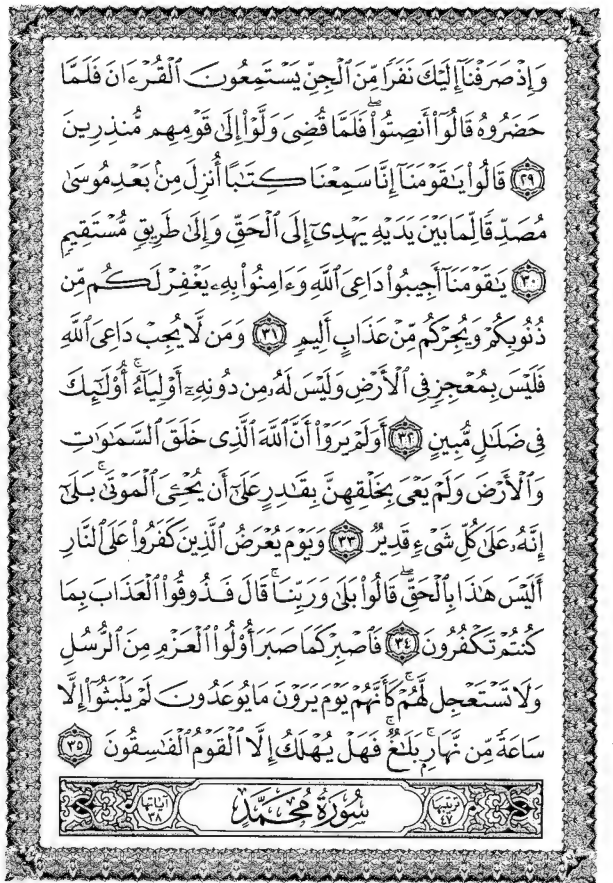 وَإِذْ صَرَفْنَآ إِلَيْكَ نَفَرًا مِّنَ ٱلْجِنِّ يَسْتَمِعُونَ ٱلْقُرْءَانَ فَلَمَّا
حَضَرُوهُ قَالُوٓا۟ أَنصِتُوا۟ ۖ فَلَمَّا قُضِىَ وَلَّوْا۟ إِلَىٰ قَوْمِهِم مُّنذِرِينَ
٢٩ قَالُوا۟ يَٰقَوْمَنَآ إِنَّا سَمِعْنَا كِتَٰبًا أُنزِلَ مِنۢ بَعْدِ مُوسَىٰ
مُصَدِّقًا لِّمَا بَيْنَ يَدَيْهِ يَهْدِىٓ إِلَى ٱلْحَقِّ وَإِلَىٰ طَرِيقٍ مُّسْتَقِيمٍ
٣٠ يَٰقَوْمَنَآ أَجِيبُوا۟ دَاعِىَ ٱللَّهِ وَءَامِنُوا۟ بِهِۦ يَغْفِرْ لَكُم مِّن
ذُنُوبِكُمْ وَيُجِرْكُم مِّنْ عَذَابٍ أَلِيمٍ ٣١ وَمَن لَّا يُجِبْ دَاعِىَ ٱللَّهِ
فَلَيْسَ بِمُعْجِزٍ فِى ٱلْأَرْضِ وَلَيْسَ لَهُۥ مِن دُونِهِۦٓ أَوْلِيَآءُ ۚ أُو۟لَٰٓئِكَ
فِى ضَلَٰلٍ مُّبِينٍ ٣٢ أَوَلَمْ يَرَوْا۟ أَنَّ ٱللَّهَ ٱلَّذِى خَلَقَ ٱلسَّمَٰوَٰتِ
وَٱلْأَرْضَ وَلَمْ يَعْىَ بِخَلْقِهِنَّ بِقَٰدِرٍ عَلَىٰٓ أَن يُحْـِۧىَ ٱلْمَوْتَىٰ ۚ بَلَىٰٓ
إِنَّهُۥ عَلَىٰ كُلِّ شَىْءٍ قَدِيرٌ ٣٣ وَيَوْمَ يُعْرَضُ ٱلَّذِينَ كَفَرُوا۟ عَلَى ٱلنَّارِ
أَلَيْسَ هَٰذَا بِٱلْحَقِّ ۖ قَالُوا۟ بَلَىٰ وَرَبِّنَا ۚ قَالَ فَذُوقُوا۟ ٱلْعَذَابَ بِمَا
كُنتُمْ تَكْفُرُونَ ٣٤ فَٱصْبِرْ كَمَا صَبَرَ أُو۟لُوا۟ ٱلْعَزْمِ مِنَ ٱلرُّسُلِ
وَلَا تَسْتَعْجِل لَّهُمْ ۚ كَأَنَّهُمْ يَوْمَ يَرَوْنَ مَا يُوعَدُونَ لَمْ يَلْبَثُوٓا۟ إِلَّا
سَاعَةً مِّن نَّهَارٍۭ ۚ بَلَٰغٌ ۚ فَهَلْ يُهْلَكُ إِلَّا ٱلْقَوْمُ ٱلْفَٰسِقُونَ ٣٥
ترتيبها ٤٧ سُورَةُ مُحَمَّدٍ آياتها ٣٨